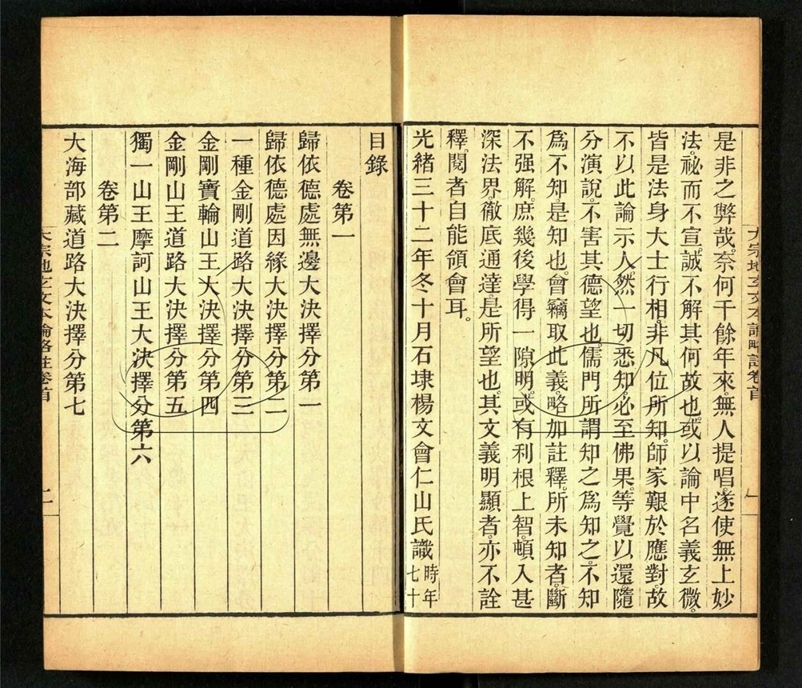 是非之弊哉。奈何千餘年來。無人提唱。遂使無上妙
法。祕而不宣。誠不解其何故也。或以論中名義玄微。
皆是法身大士行相。非凡位所知。師家艱於應對。故
不以此論示人。然一切悉知。必至佛果。等覺以還。隨
分演說。不害其德望也。儒門所謂知之爲知之。不知
爲不知。是知也。會竊取此義。略加註釋。所未知者。斷
不强解。庶幾後學得一隙明。或有利根上智。頓入甚
深法界。徹底通達。是所望也。其文義明顯者。亦不詮
釋。閱者自能領會耳。
光緒三十二年冬十月石埭楊文會仁山氏識時年七十
大宗地玄文本論略註卷首 一
目錄
卷第一
歸依德處無邊大決擇分第一
歸依德處因緣大決擇分第二
一種金剛道路大決擇分第三
金剛寶輪山王大決擇分第四
金剛山王道路大決擇分第五
獨一山王摩訶山王大決擇分第六
卷第二
大海部藏道路大決擇分第七
大宗地玄文本論略註卷首 二